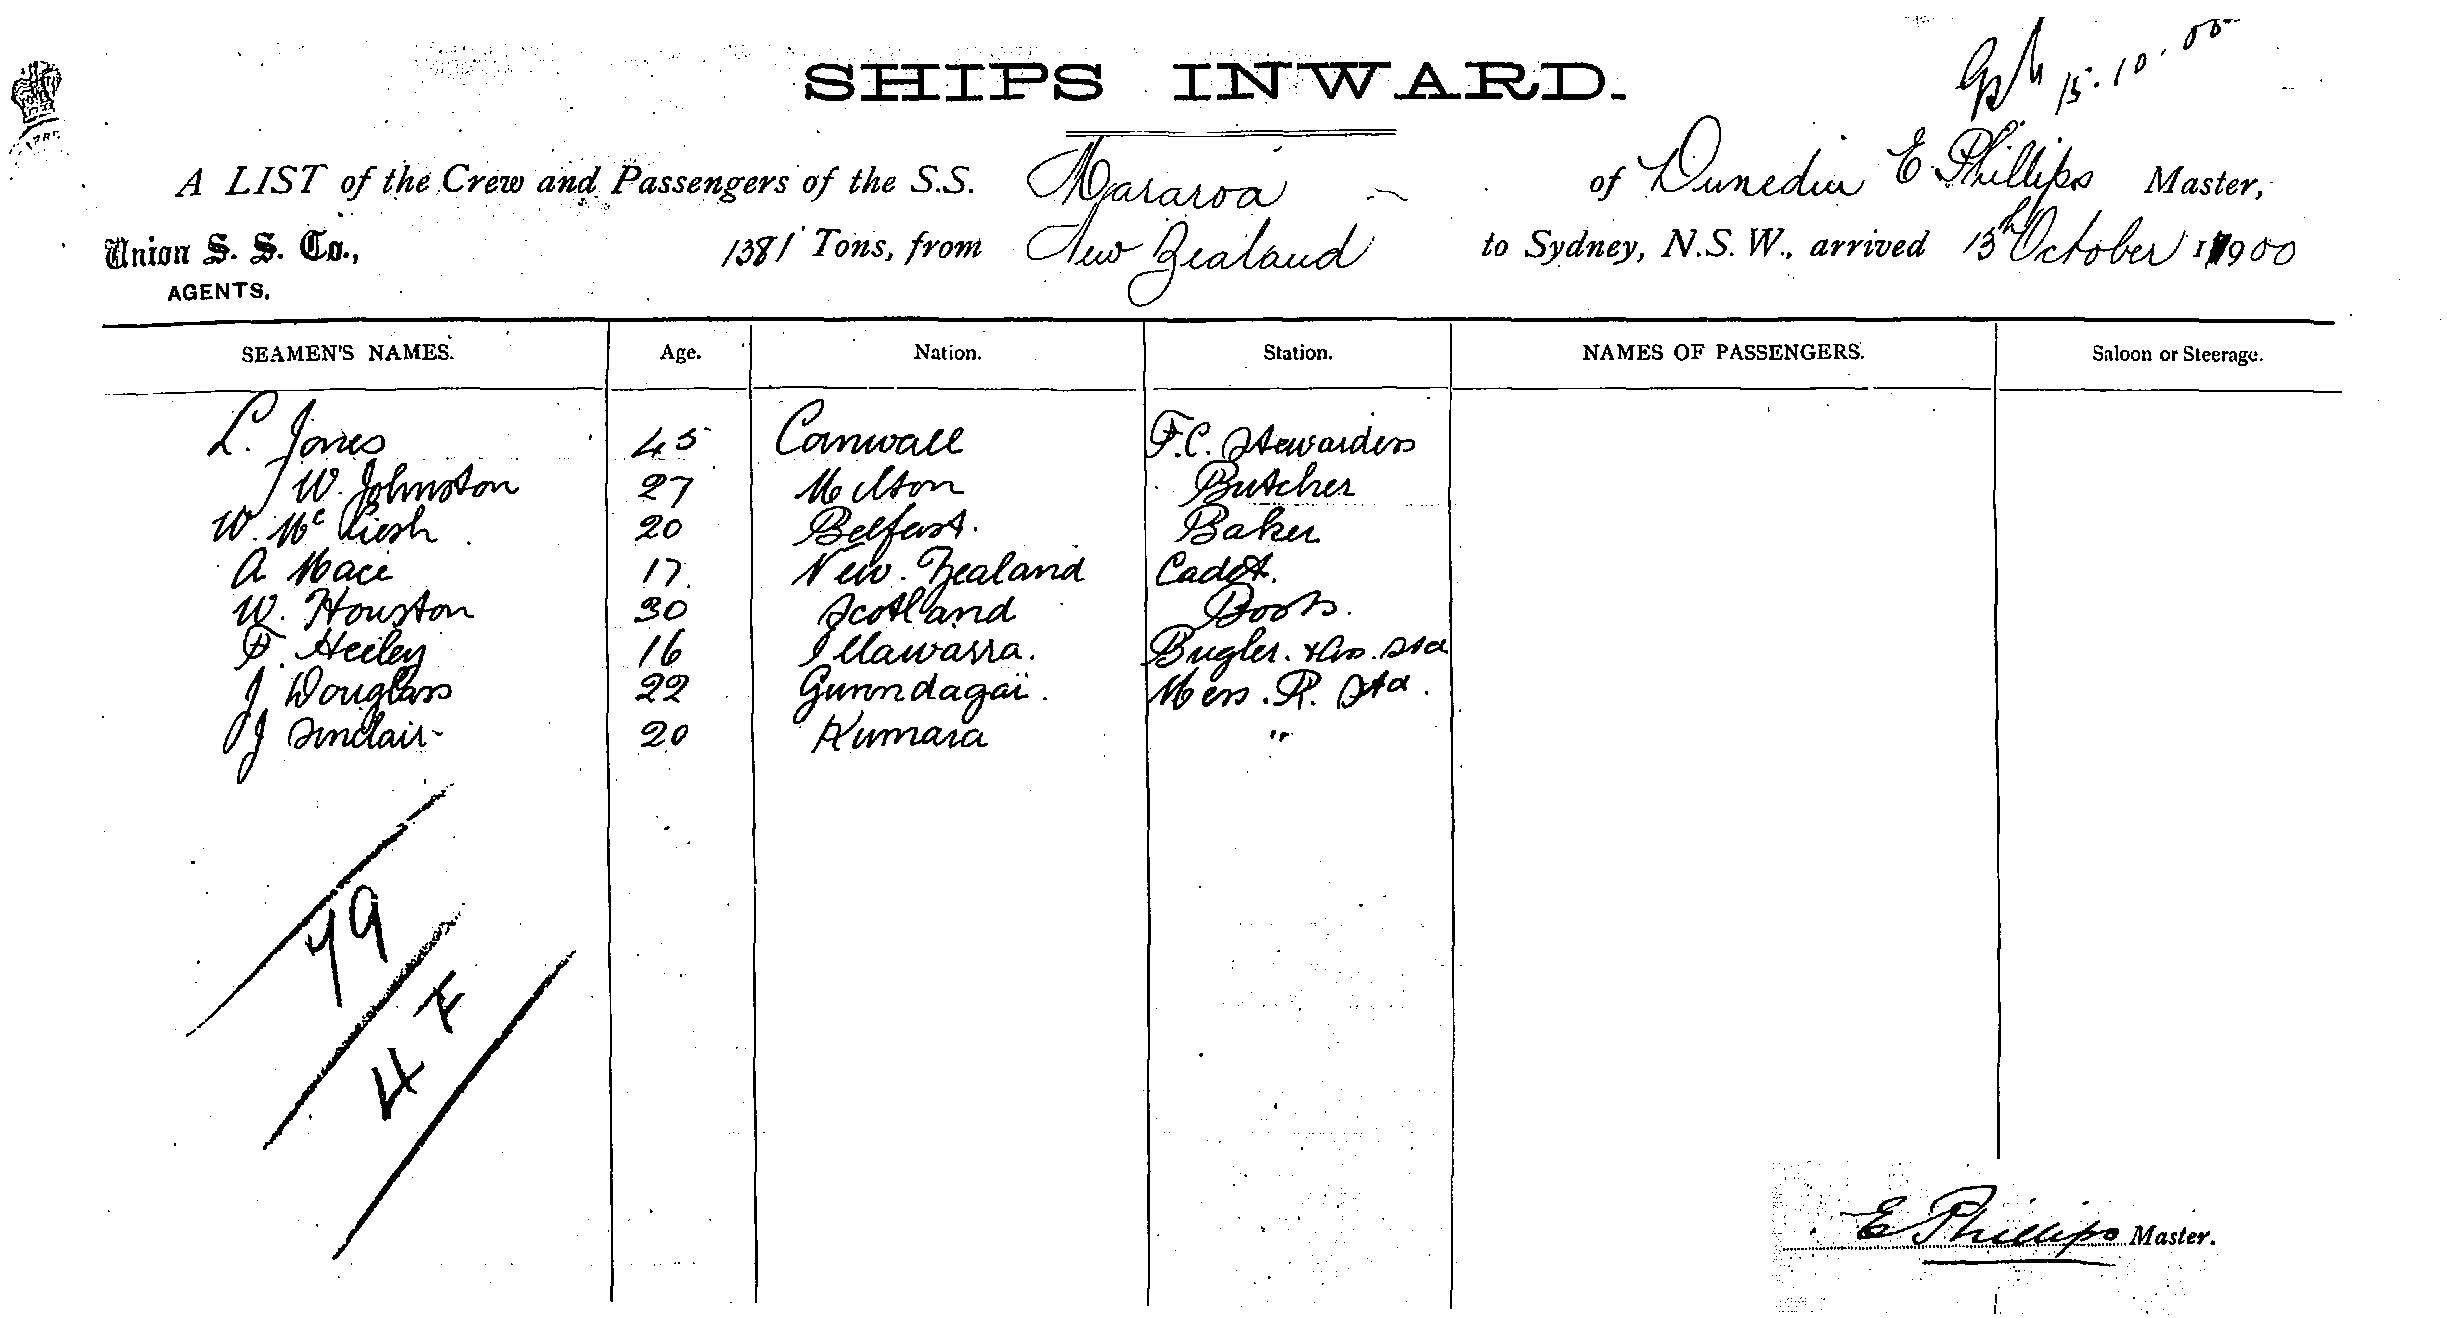 15.10.00
SHIPS INWARD.
A LIST of the Crew and Passengers of the S.S. Mararoa of Dunedin E Phillips Master,
Union S. S. Co., 1381 Tons, from New Zealand to Sydney, N.S.W., arrived 13th October 1900
AGENTS.
SEAMEN'S NAMES. Age. Nation. Station. NAMES OF PASSENGERS. Saloon or Steerage.
L. Jones 45 Cornwall F.C. Stewardess
W. Johnston 27 Milton Butcher
W. Mc 20 Belfast. Baker
A Mace 17. New. Zealand Cadet.
W. Houston 30 Scotland Boots.
F. Heiley 16 Illawarra. Bugler. & Ass. Std
J Douglass 22 Gunndagai. Mess. R. Std.
J Sinclair 20 Kumara "
79
4 F
E Phillips Master.